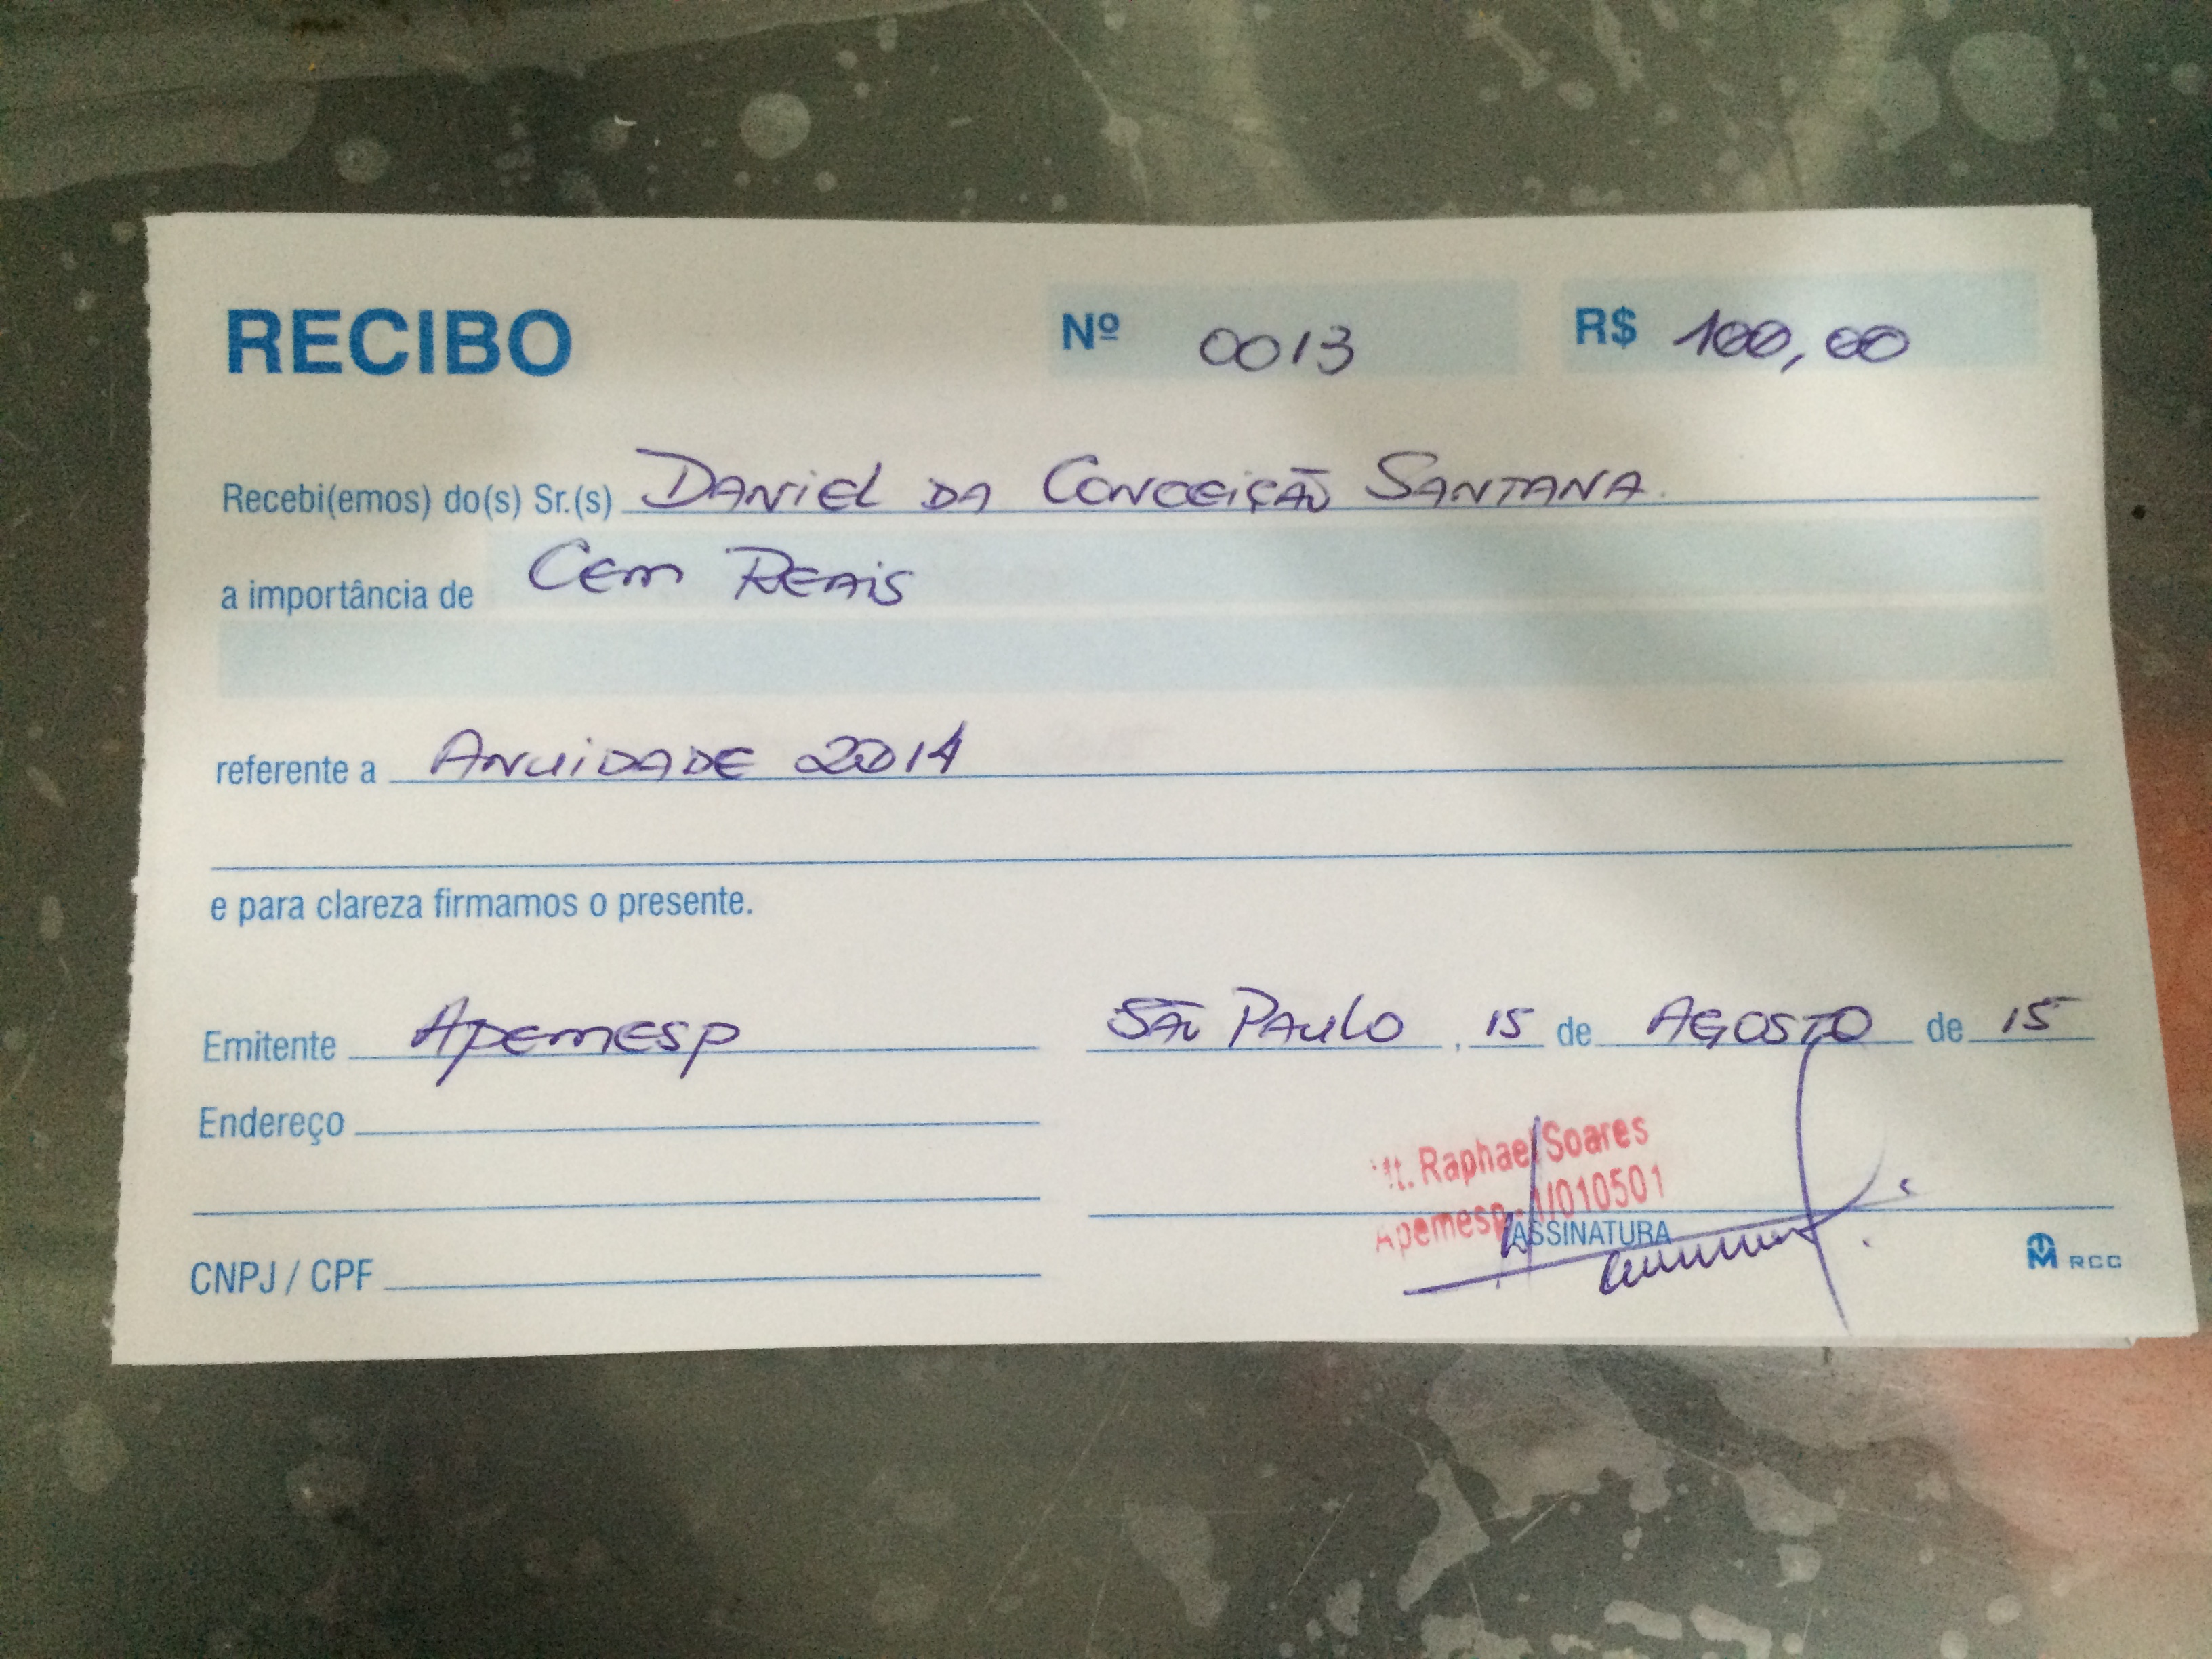 RECIBO Nº 0013 R$ 100,00
Recebi(emos) do(s) Sr.(s) Daniel da Conceição Santana
a importância de Cem Reais
referente a Anuidade 2014
e para clareza firmamos o presente.
Emitente Apemesp São Paulo, 15 de Agosto de 15
Endereço
Mt. Raphael Soares
Apemesp - 1/010501
ASSINATURA
CNPJ / CPF
RCC